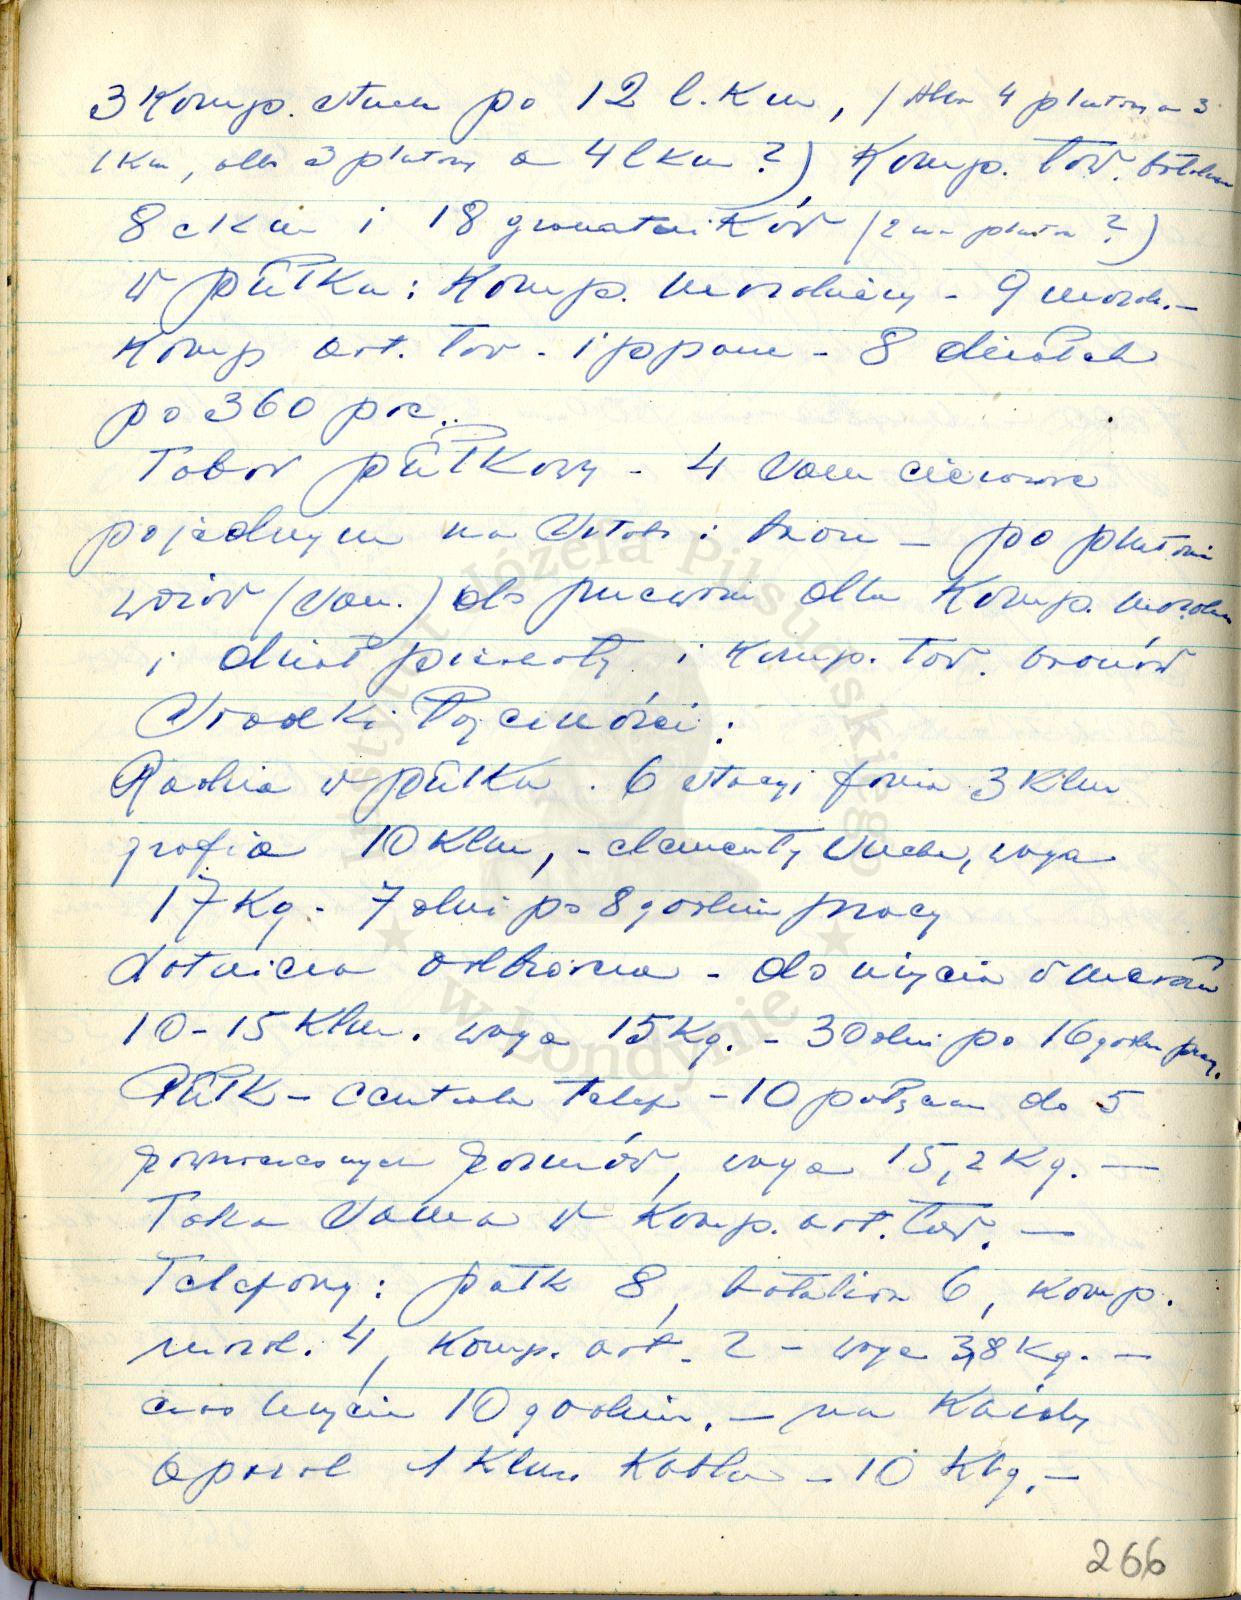 3 Komp. strzel. po 12 l.Km, / Albo 4 plutony a 3
lKm, albo 3 plutony a 4 lkm ?) Komp. tow. batalionu
8 cKm i 18 granatników (2 na pluton ?)
w pułku: Komp. moździerzy - 9 moźdz. -
Komp art. tow. - i ppanc - 8 działek
po 360 poc.
Tabor pułkowy - 4 sam. ciężarowe
po jednym na sztab i baon - po plutonie
wozów (sam.) do przewozu dla Komp. moźdz.
i dział piechoty i Komp. tow. baonów
Środki łączności:
Radia w pułku. 6 stacyj fonia 3 Klm
grafia 10 Klm, - elementy suche, waga
17 Kg. - 7 dni po 8 godzin pracy
Lotnicza odbiorcza - do użycia w
10 - 15 Klm. waga 15 Kg. - 30 dni po 16 godzin pracy.
Pułk - centrala telef - 10 połączeń do 5
równoczesnych rozmów, waga 15,2 Kg. —
Taka sama w Komp. art. tow. —
Telefony: pułk 8, batalion 6, Komp.
moźdz. 4, Komp. art. 2 - waga 3,8 Kg. —
czas użycia 10 godzin. — na Każdy
aparat 1 Klm. Kabla - 10 Klg. —
266
Instytut Józefa Piłsudskiego
w Londynie